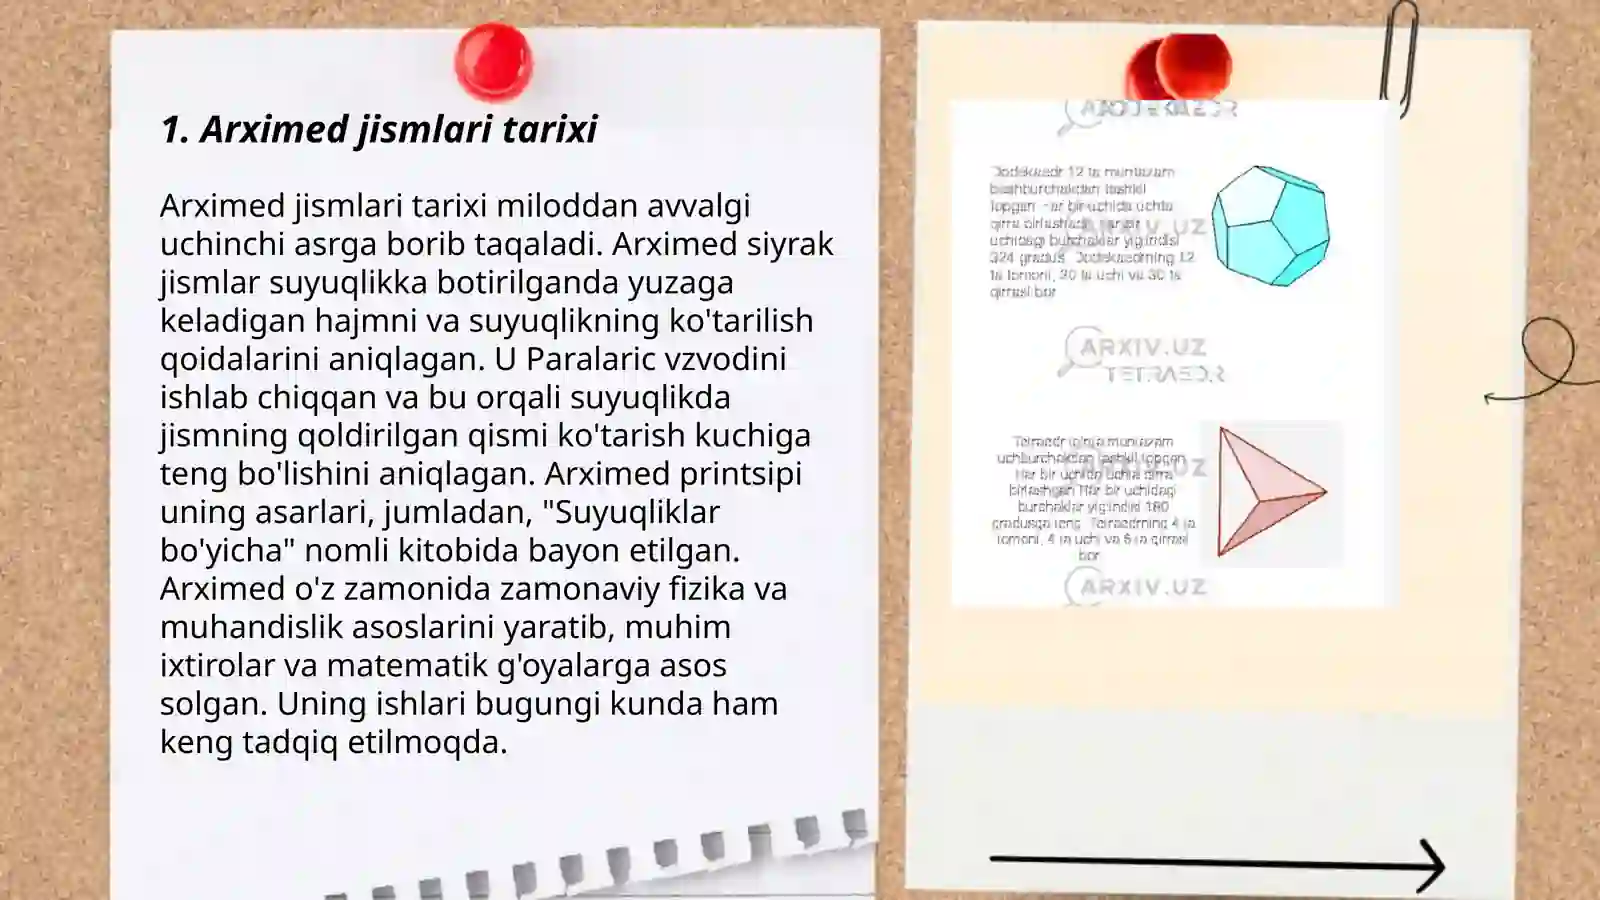 1. Arximed jismlari tarixi
Arximed jismlari tarixi miloddan avvalgi
uchinchi asrga borib taqaladi. Arximed siyrak
jismlar suyuqlikka botirilganda yuzaga
keladigan hajmni va suyuqlikning ko'tarilish
qoidalarini aniqlagan. U Paralaric vzvodini
ishlab chiqqan va bu orqali suyuqlikda
jismning qoldirilgan qismi ko'tarish kuchiga
teng bo'lishini aniqlagan. Arximed printsipi
uning asarlari, jumladan, "Suyuqliklar
bo'yicha" nomli kitobida bayon etilgan.
Arximed o'z zamonida zamonaviy fizika va
muhandislik asoslarini yaratib, muhim
ixtirolar va matematik g'oyalarga asos
solgan. Uning ishlari bugungi kunda ham
keng tadqiq etilmoqda.
Dodekaedr 12 ta muntazam
beshburchakdan tashkil
topgan. Har bir uchida uchta
qirra birlashadi.
uchidagi burchaklar yig'indisi
324 gradus. Dodekaedrning 12
ta tomoni, 20 ta uchi va 30 ta
qirrasi bor
ARXIV.UZ
TETRAEDR
Tetraedr to'rtta muntazam
uchburchakdan tashkil topgan.
Har bir uchida uchta qirra
birlashgan Har bir uchidagi
burchaklar yig'indisi 180
gradusga teng. Tetraedrning 4 ta
tomoni, 4 ta uchi va 6 ta qirrasi
bor
ARXIV.UZ